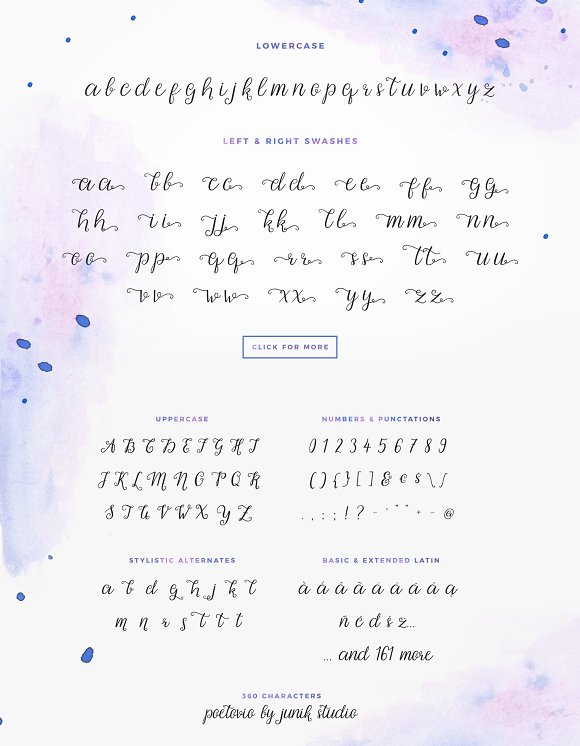 LOWERCASE
a b c d e f g h i j k l m n o p q r s t u v w x y z
LEFT & RIGHT SWASHES
a a b b c c d d e e f f g g
h h i i j j k k l l m m n n
o o p p q q r r s s t t u u
v v w w x x y y z z
CLICK FOR MORE
UPPERCASE
A B C D E F G H I
J K L M N O P Q R
S T U V W X Y Z
NUMBERS & PUNCTATIONS
0 1 2 3 4 5 6 7 8 9
( ) { } [ ] & € $ \ /
. , : ; ! ? - " " + - @
STYLISTIC ALTERNATES
a b d g h j k l
m n r s t t t
BASIC & EXTENDED LATIN
... and 161 more
360 CHARACTERS
poetovio by junik studio